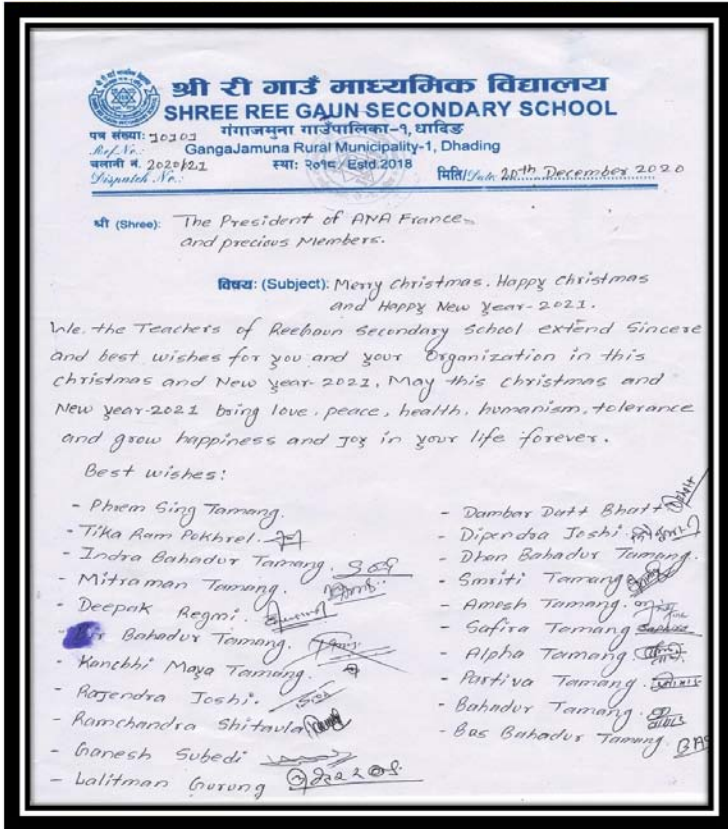 श्री री गाउँ माध्यमिक विद्यालय
SHREE REE GAUN SECONDARY SCHOOL
गंगाजमुना गाउँपालिका-१, धादिङ
पत्र संख्या: 10101
Ref.No.:
GangaJamuna Rural Municipality-1, Dhading
चलानी नं. 2020/21
स्था: २०१८ / Estd.2018
मिति/Date: 20th December 2020
Dispatch No.:
श्री (Shree): The President of ANA France
and precious Members.
विषय: (Subject): Merry Christmas. Happy Christmas
and Happy New Year-2021.
We, the Teachers of ReeGaun Secondary School extend Sincere
and best wishes for you and your Organization in this
christmas and New year-2021, May this christmas and
New year-2021 bring love, peace, health, humanism, tolerance
and grow happiness and Joy in your life forever.
Best wishes:
- Phrem Sing Tamang.
- Tika Ram Pokhrel.
- Indra Bahadur Tamang.
- Mitraman Tamang.
- Deepak Regmi.
- Bir Bahadur Tamang.
- Kanchhi Maya Tamang.
- Rajendra Joshi.
- Ramchandra Shitaula
- Ganesh Subedi
- Lalitman Gurung
- Dambar Datt Bhatt
- Dipendra Joshi
- Dhan Bahadur Tamang.
- Smriti Tamang
- Amesh Tamang.
- Safira Tamang
- Alpha Tamang
- Partiva Tamang.
- Bahadur Tamang.
- Bas Bahadur Tamang.